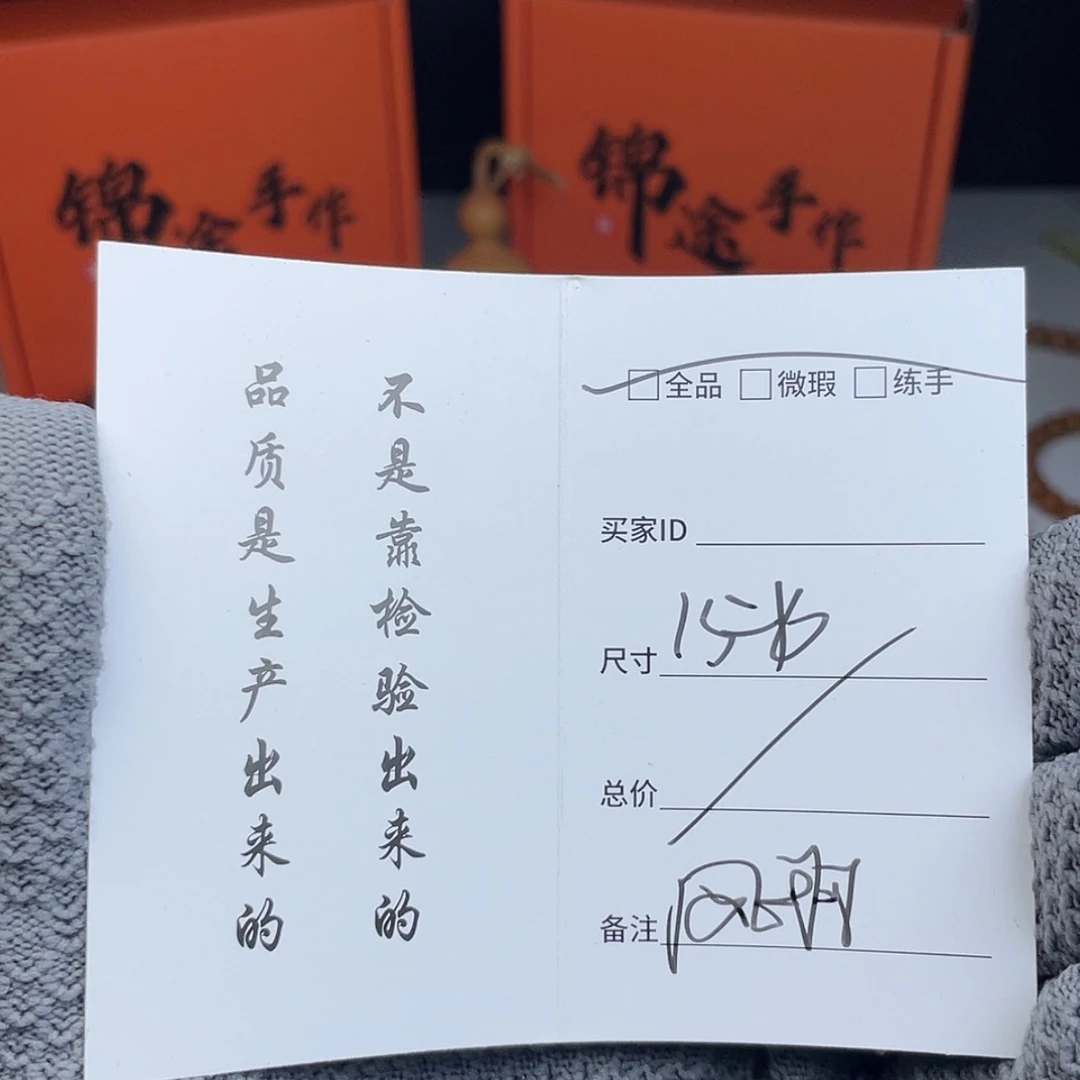 锦途手作
锦途手作
品质是生产出来的
不是靠检验出来的
□全品 □微瑕 □练手
买家ID
尺寸
总价
备注